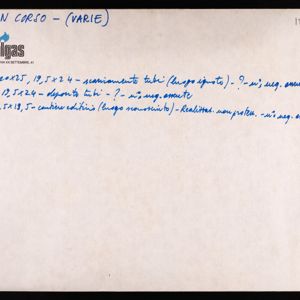 N CORSO - (VARIE)
lgas
VIA XX SETTEMBRE, 41
20x25, 19,5x24 - scaricamento tubi (luogo ignoto) - ? - n°; neg. assente
19,5x24 - deposito tubi - ? - n°; neg. assente
,5x19,5 - cantiere edilizio (luogo sconosciuto) - Realizzaz. non poster. - n°; neg.